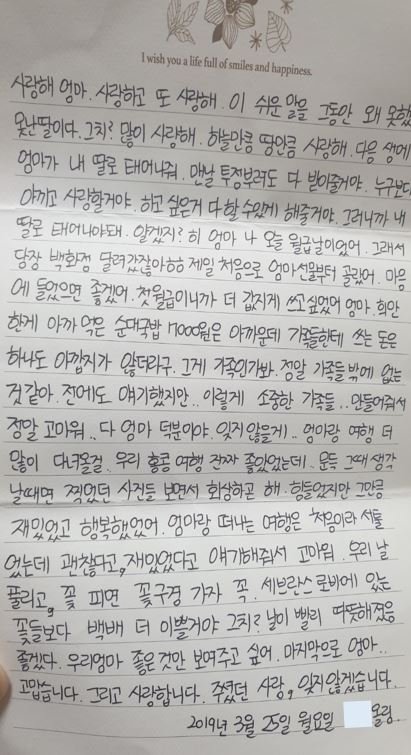 I wish you a life full of smiles and happiness.
사랑해 엄마. 사랑하고 또 사랑해. 이 쉬운 말을 그동안 왜 못했
못난 딸이다. 그치? 많이 사랑해. 하늘만큼 땅만큼 사랑해. 다음 생에
엄마가 내 딸로 태어나줘. 맨날 투정부려도 다 받아줄거야. 누구보다
아끼고 사랑할거야. 하고 싶은거 다 할 수 있게 해줄거야. 그러니까 내
딸로 태어나야돼. 알겠지? 히 엄마 나 오늘 월급날이었어. 그래서
당장 백화점 달려갔잖아ㅎㅎ 제일 처음으로 엄마 선물부터 골랐어. 마음
에 들었으면 좋겠어. 첫월급이니까 더 값지게 쓰고 싶었어 엄마. 희안
하게 아까 먹은 순대국밥 7000원은 아까운데 가족들한테 쓰는 돈은
하나도 아깝지가 않더라구. 그게 가족인가봐. 정말 가족들 밖에 없는
것 같아. 전에도 얘기했지만.. 이렇게 소중한 가족들.. 만들어줘서
정말 고마워.. 다 엄마 덕분이야. 잊지 않을게.. 엄마랑 여행 더
많이 다녀올걸. 우리 홍콩 여행 진짜 좋았었는데!.. 문득 그때 생각
날때면 찍었던 사진들 보면서 회상하곤 해. 힘들었지만 그만큼
재밌었고 행복했었어. 엄마랑 떠나는 여행은 처음이라 서툴
었는데 괜찮다고, 재밌었다고 얘기해줘서 고마워. 우리 날
풀리고, 꽃 피면 꽃구경 가자 꼭. 세브란스 로비에 있는
꽃들보다 백배 더 이쁠거야 그치? 날이 빨리 따뜻해졌음
좋겠다. 우리엄마 좋은것만 보여주고 싶어. 마지막으로 엄마..
고맙습니다. 그리고 사랑합니다. 주셨던 사랑, 잊지 않겠습니다.
2019년 3월 25일 월요일 올림.